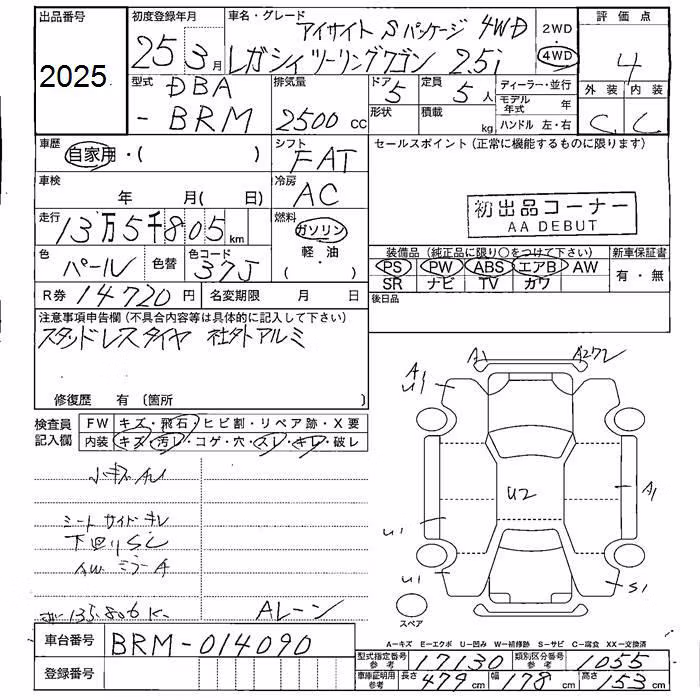 出品番号
2025
初度登録年月
25 3月
車名・グレード
アイサイト Sパッケージ 4WD
レガシィツーリングワゴン 2.5i
2WD
・
4WD
評価点
4
外装 内装
C C
型式
DBA
-BRM
排気量
2500 cc
ドア
5
定員
5人
形状
積載
kg
ディーラー・並行
モデル年式 年
ハンドル 左・右
車歴
自家用・( )
シフト
FAT
セールスポイント (正常に機能するものに限ります)
車検
年 月( 日)
冷房
AC
初出品コーナー
AA DEBUT
走行
13万5千805km
燃料
ガソリン
・軽油・
( )
色
パール
色替
色コード
37J
装備品 (純正品に限り○をつけて下さい)
新車保証書
PS PW ABS エアB AW
SR ナビ TV カワ
有・無
R券 14720円
名変期限 月 日
後日品
注意事項申告欄 (不具合内容等は具体的に記入して下さい)
スタッドレスタイヤ 社外アルミ
修復歴 有 〔箇所 〕
検査員
記入欄
FW キズ・飛石・ヒビ割・リペア跡・X要
内装 キズ・汚レ・コゲ・穴・スレ・キレ・破レ
小キズAU
シートサイドキレ
下回りSC
AW ミラーA
135.806K
Aレーン
A1
A272
A1
U1
U2
A1
U1
U1
S1
スペア
A-キズ E-エクボ U-凹み W-補修跡 S-サビ C-腐食 XX-交換済
車台番号 BRM-014090
登録番号
型式指定番号
参考
17130
類別区分番号
参考
1055
車庫証明用
参考
長さ 479cm 幅 178cm 高さ 153cm